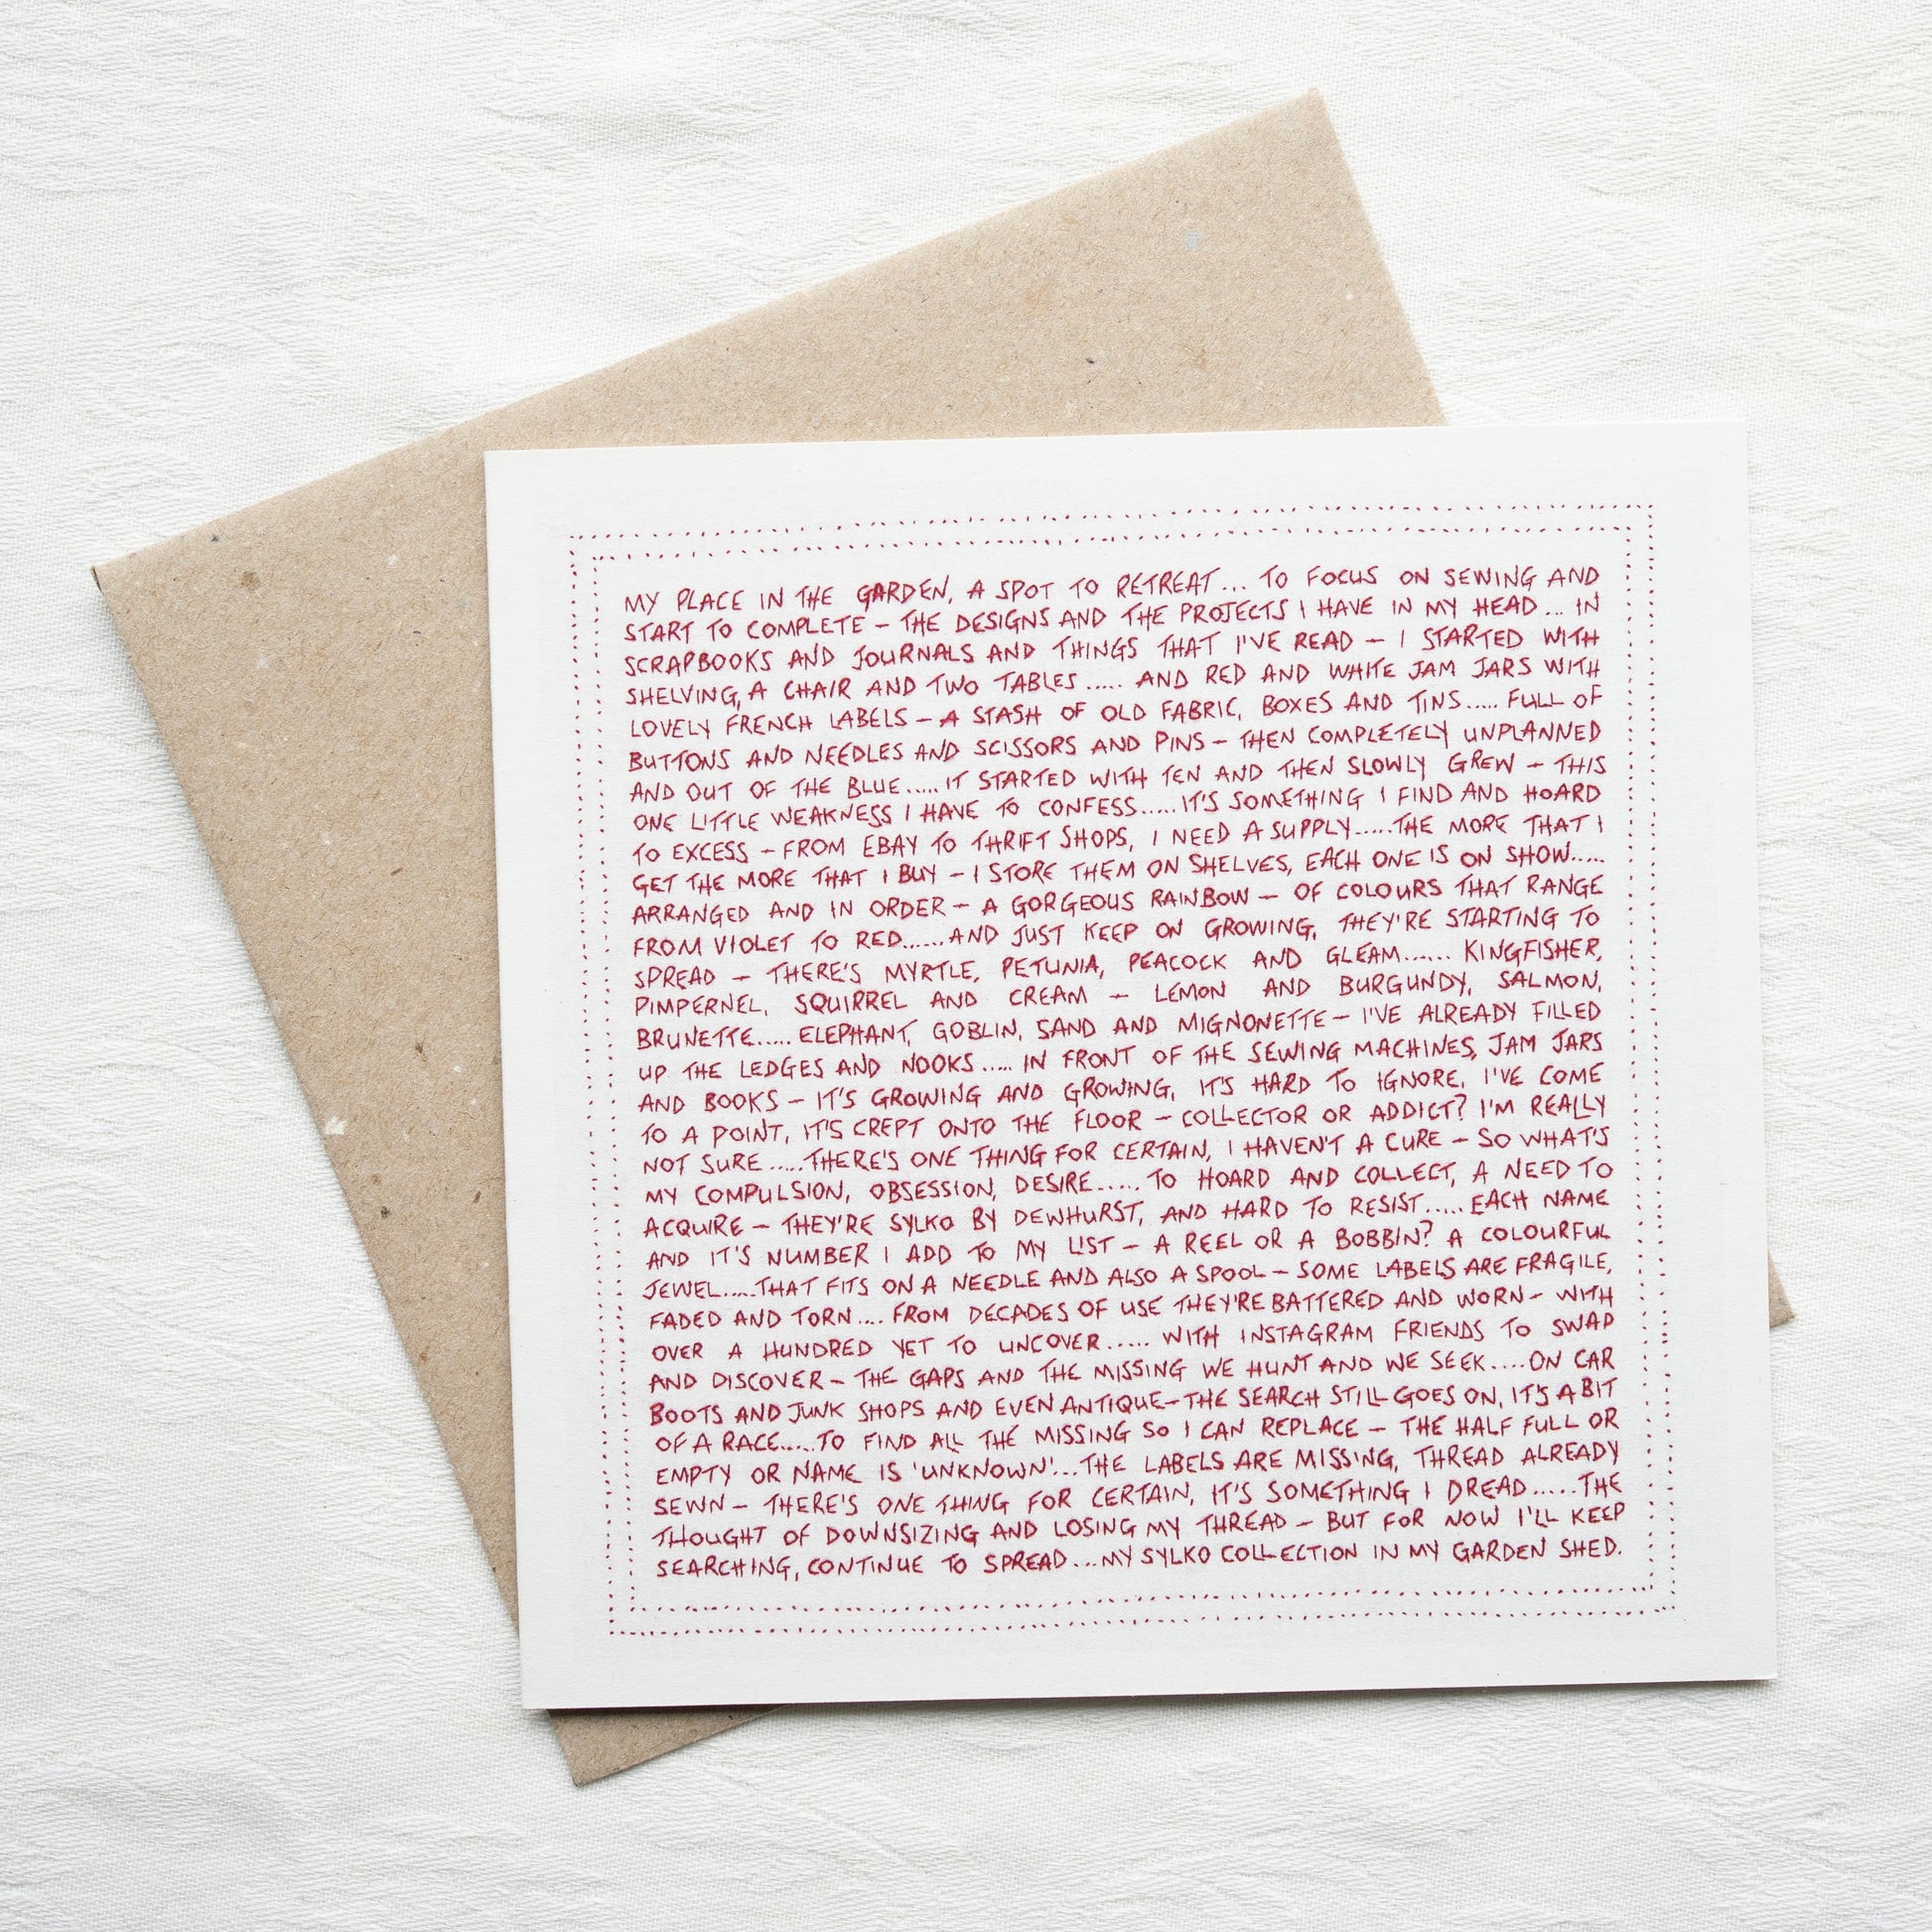 MY PLACE IN THE GARDEN, A SPOT TO RETREAT... TO FOCUS ON SEWING AND
START TO COMPLETE – THE DESIGNS AND THE PROJECTS I HAVE IN MY HEAD... IN
SCRAPBOOKS AND JOURNALS AND THINGS THAT I'VE READ – I STARTED WITH
SHELVING, A CHAIR AND TWO TABLES..... AND RED AND WHITE JAM JARS WITH
LOVELY FRENCH LABELS – A STASH OF OLD FABRIC, BOXES AND TINS..... FULL OF
BUTTONS AND NEEDLES AND SCISSORS AND PINS – THEN COMPLETELY UNPLANNED
AND OUT OF THE BLUE..... IT STARTED WITH TEN AND THEN SLOWLY GREW – THIS
ONE LITTLE WEAKNESS I HAVE TO CONFESS..... IT'S SOMETHING I FIND AND HOARD
TO EXCESS – FROM EBAY TO THRIFT SHOPS, I NEED A SUPPLY..... THE MORE THAT I
GET THE MORE THAT I BUY – I STORE THEM ON SHELVES, EACH ONE IS ON SHOW.....
ARRANGED AND IN ORDER – A GORGEOUS RAINBOW – OF COLOURS THAT RANGE
FROM VIOLET TO RED...... AND JUST KEEP ON GROWING, THEY'RE STARTING TO
SPREAD – THERE'S MYRTLE, PETUNIA, PEACOCK AND GLEAM...... KINGFISHER,
PIMPERNEL, SQUIRREL AND CREAM – LEMON AND BURGUNDY, SALMON,
BRUNETTE..... ELEPHANT, GOBLIN, SAND AND MIGNONETTE – I'VE ALREADY FILLED
UP THE LEDGES AND NOOKS..... IN FRONT OF THE SEWING MACHINES, JAM JARS
AND BOOKS – IT'S GROWING AND GROWING, IT'S HARD TO IGNORE, I'VE COME
TO A POINT, IT'S CREPT ONTO THE FLOOR – COLLECTOR OR ADDICT? I'M REALLY
NOT SURE..... THERE'S ONE THING FOR CERTAIN, I HAVEN'T A CURE – SO WHAT'S
MY COMPULSION, OBSESSION, DESIRE..... TO HOARD AND COLLECT, A NEED TO
ACQUIRE – THEY'RE SYLKO BY DEWHURST, AND HARD TO RESIST..... EACH NAME
AND IT'S NUMBER I ADD TO MY LIST – A REEL OR A BOBBIN? A COLOURFUL
JEWEL..... THAT FITS ON A NEEDLE AND ALSO A SPOOL – SOME LABELS ARE FRAGILE,
FADED AND TORN.... FROM DECADES OF USE THEY'RE BATTERED AND WORN – WITH
OVER A HUNDRED YET TO UNCOVER..... WITH INSTAGRAM FRIENDS TO SWAP
AND DISCOVER – THE GAPS AND THE MISSING WE HUNT AND WE SEEK.... ON CAR
BOOTS AND JUNK SHOPS AND EVEN ANTIQUE – THE SEARCH STILL GOES ON, IT'S A BIT
OF A RACE..... TO FIND ALL THE MISSING SO I CAN REPLACE – THE HALF FULL OR
EMPTY OR NAME IS 'UNKNOWN'... THE LABELS ARE MISSING, THREAD ALREADY
SEWN – THERE'S ONE THING FOR CERTAIN, IT'S SOMETHING I DREAD..... THE
THOUGHT OF DOWNSIZING AND LOSING MY THREAD – BUT FOR NOW I'LL KEEP
SEARCHING, CONTINUE TO SPREAD... MY SYLKO COLLECTION IN MY GARDEN SHED.